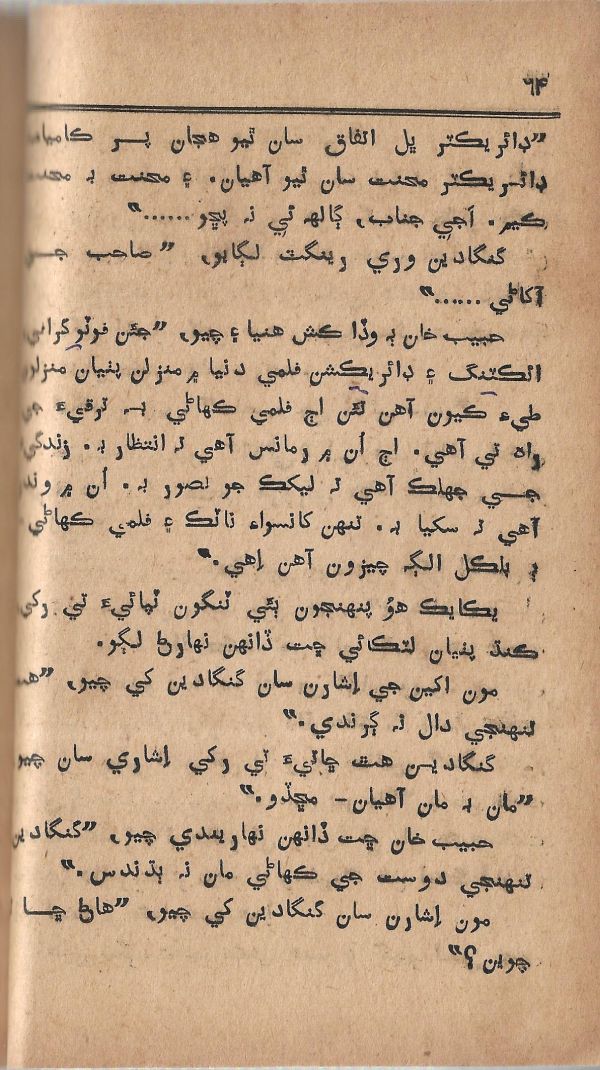 ٦۴
”ڊائريڪٽر ڀل اتفاق سان ٿيو هجان پر
ڊائريڪٽر محنت سان ٿيو آهيان. ۽ محنت بہ
ڪير. اَجي جناب، ڳالهہ ئي نہ پڇو......“
گنگادين وري رينگٽ لڳايو، ”صاحب
آکاڻي ......“
حبيب خان بہ وڏا ڪش هنيا ۽ چيو، ”جئن فوٽوگرافي
ائڪٽنگ ۽ ڊائريڪشن فلمي دنيا ۾ منزلن پٺيان منزلون
طيءِ ڪيون آهن تئن اڄ فلمي ڪهاڻي بہ ترقيءَ جي
راه تي آهي. اڄ اُن ۾ رمانس آهي تہ انتظار بہ. زندگيءَ
جي جهلڪ آهي تہ ليکڪ جو تصور بہ. اُن ۾
آهي تہ سکيا بہ. تنهن کانسواءِ ناٽڪ ۽ فلمي ڪهاڻي
۾ بلڪل الڳ چيزون آهن اِهي.“
يڪايڪ هوُ پنهنجون ٻئي ٽنگون ٽپائيءَ تي رکي
ڪنڌ پٺيان لٽڪائي ڇت ڏانهن نهارڻ لڳو.
مون اکين جي اِشارن سان گنگادين کي چيو،
تنهنجي دال نہ ڳرندي.“
گنگادين هٿ ڇاتيءَ تي رکي اِشاري سان چيو
”مان بہ مان آهيان- مڇڏو.“
حبيب خان ڇت ڏانهن نهاريندي چيو، ”گنگادين
تنهنجي دوست جي ڪهاڻي مان نہ ٻڌندس.“
مون اِشارن سان گنگادين کي چيو، ”هاڻ ڇا
چوين؟“